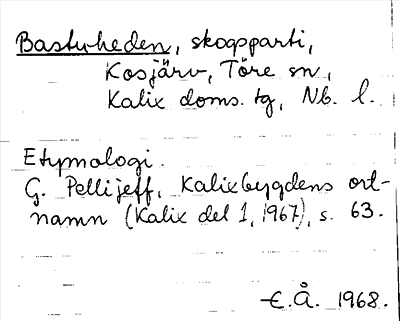 Bastuheden, skogsparti,
Kosjärv, Töre sn,
Kalix doms. tg, Nb. l.
Etymologi.
G. Pellijeff, Kalixbygdens ort-
namn (Kalix del 1, 1967), s. 63.
E.Å. 1968.